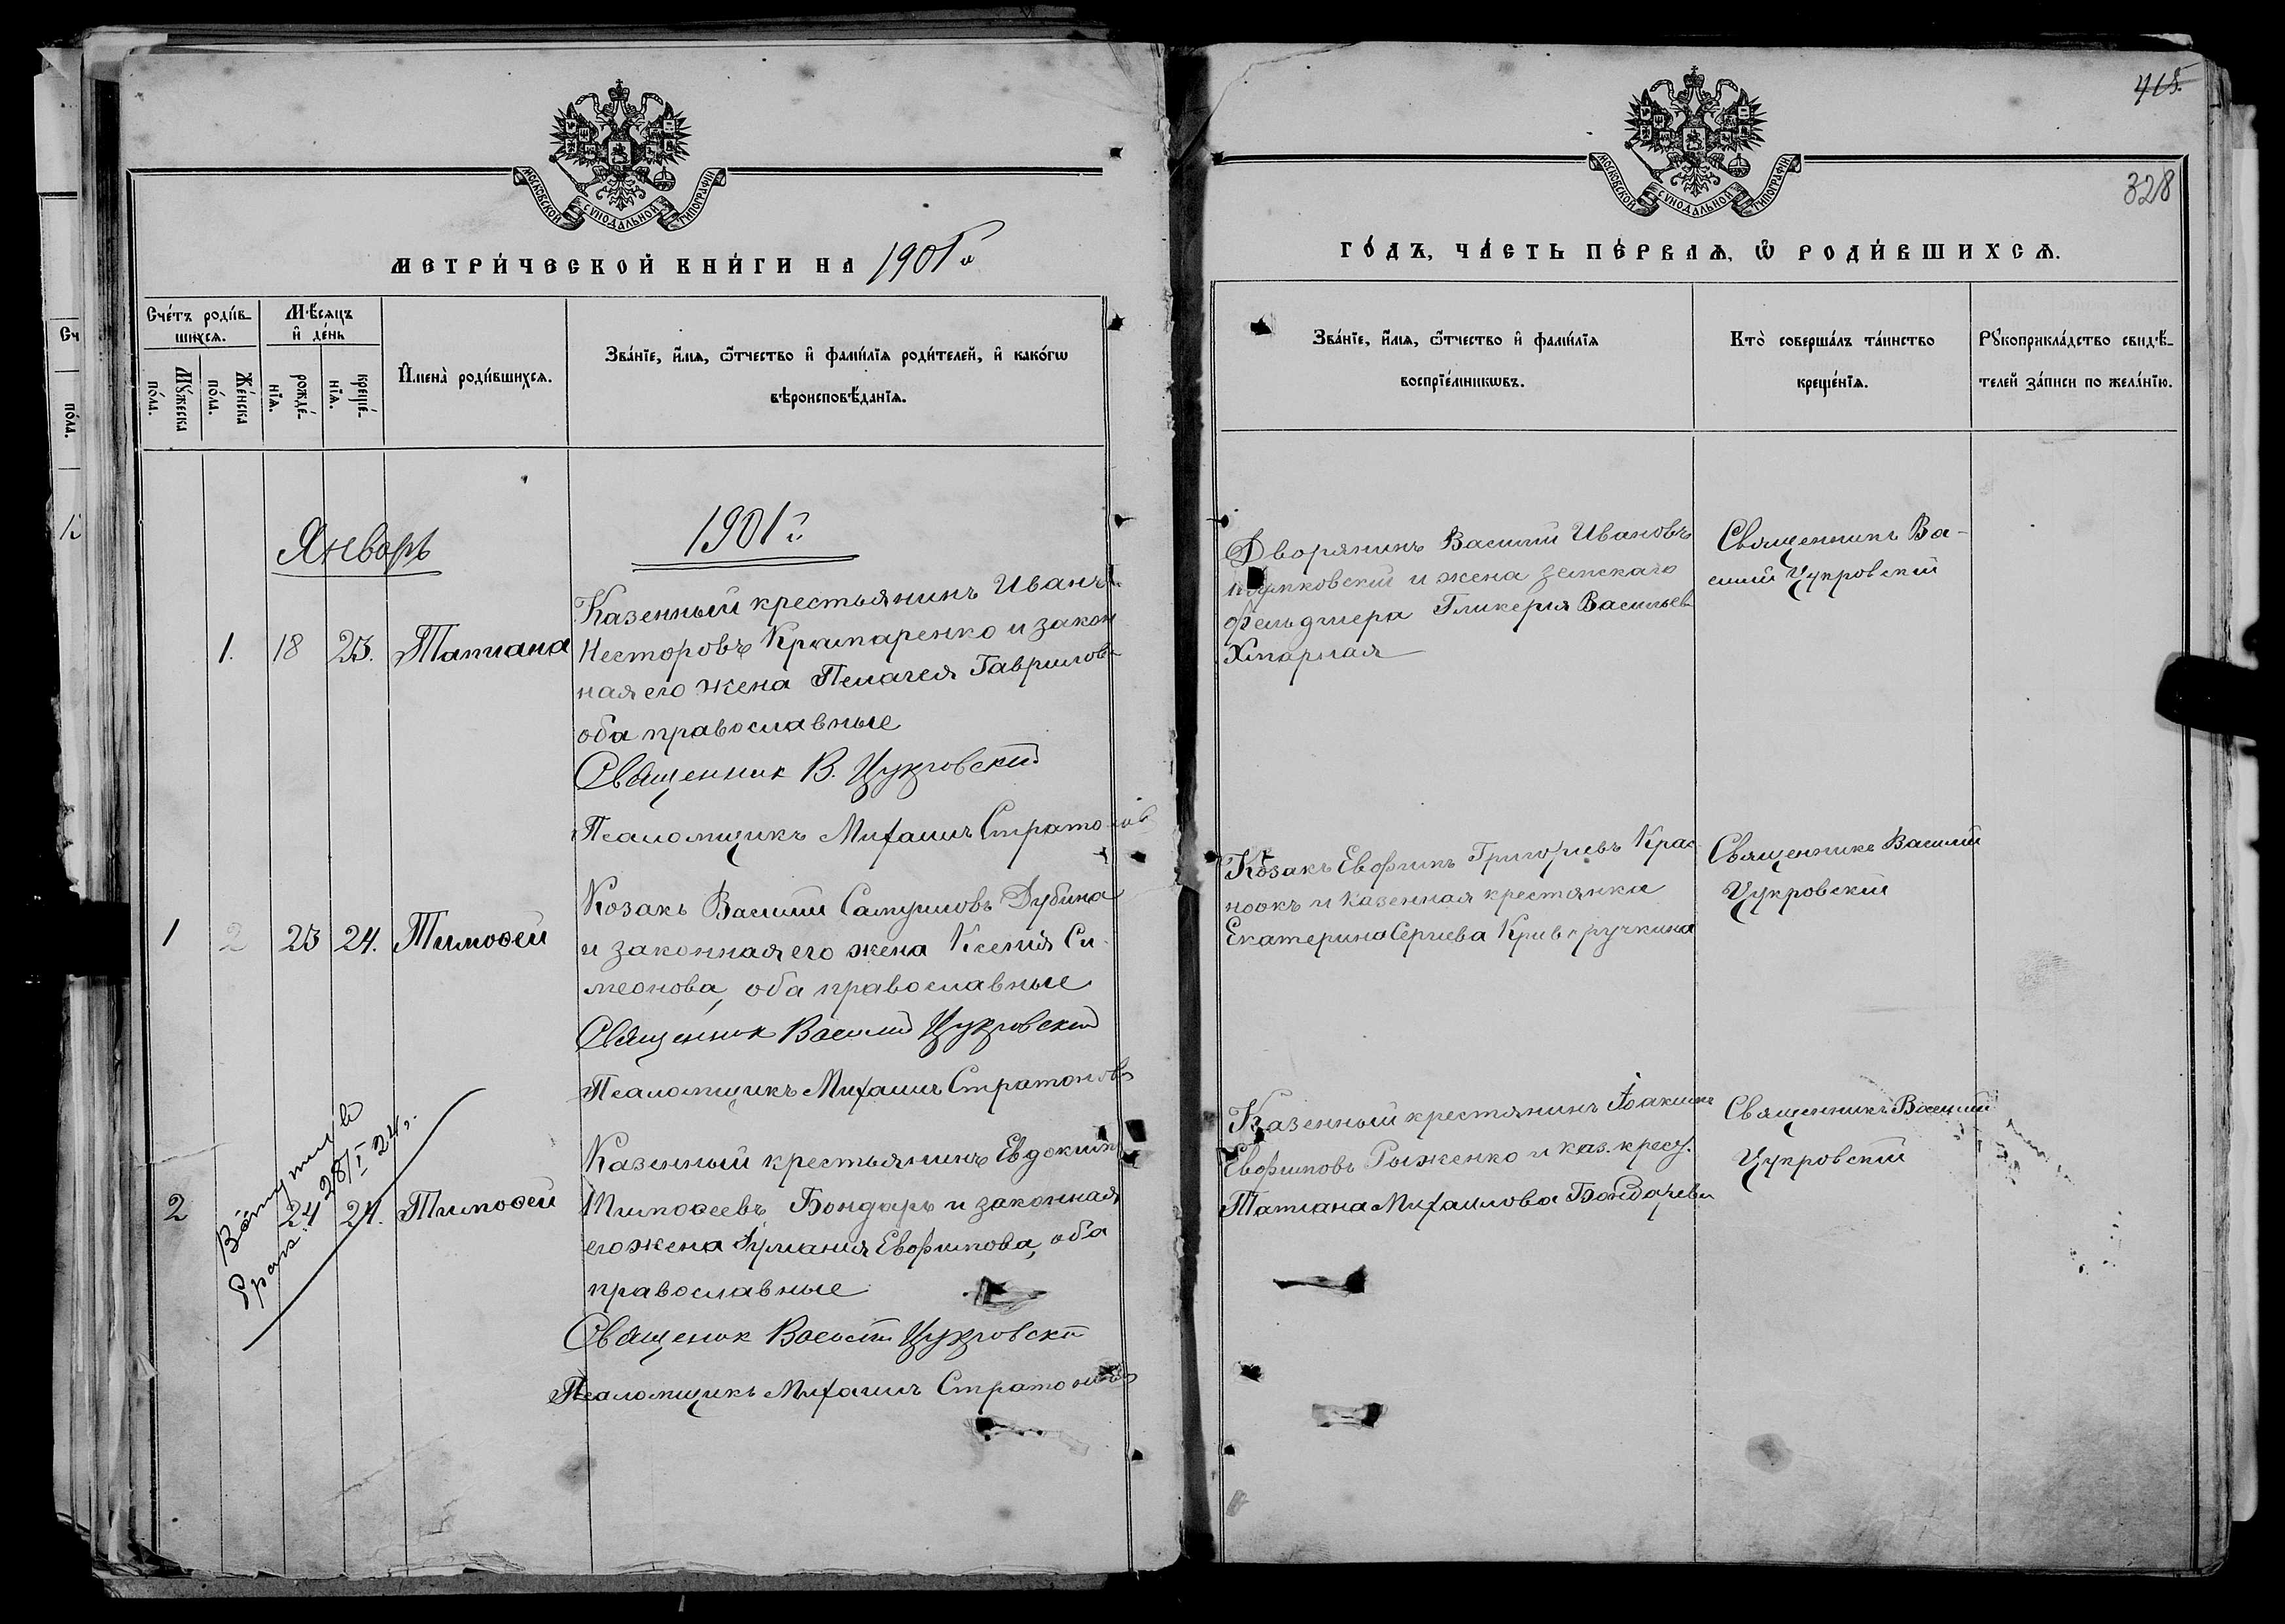 МОСКОВСКОЙ СѴНОДАЛЬНОЙ ТИПОГРАФІИ
МЕТРИ́ЧЕСКОЙ КНИ́ГИ НА 1901 г.
Сче́тъ роди́в-
шихсѧ.
Мѣ́сѧцъ
и҆ де́нь
Мꙋ́жеска
по́ла.
Же́нска
по́ла.
рожде́-
нїѧ.
креще́-
нїѧ.
И҆мена̀ роди́вшихсѧ.
Зва́нїе, и҆́мѧ, ѻ҆́тчество и҆ фамі́лїѧ роди́телей, и҆ како́гѡ
вѣроисповѣ́данїѧ.
Январь
1901 г.
1. 18 23. Татиана
Казенный крестьянинъ Иванъ
Несторовъ Крамаренко и закон
ная его жена Пелагея Гаврилов-
оба православные
Священник В. Цукровский
Псаломщикъ Михаилъ Стратонов
1 2 23 24. Тимоѳей
Козакъ Василий Самуиловъ Дубина
и законная его жена Ксенія Си-
меонова, оба православные
Священник Василий Цукровский
Псаломщикъ Михаилъ Стратонов
28/I 24 г.
2 24 24. Тимоѳей
Казенный крестьянинъ Евдокимъ
Тимоѳеевъ Бондарь и законная
его жена Евфимова, оба
православные
Священик Василий Цукровский
Псаломщикъ Михаилъ Стратоновъ
415.
МОСКОВСКОЙ СѴНОДАЛЬНОЙ ТИПОГРАФІИ
328
ГО́ДЪ, ЧА́СТЬ ПЕ́РВАѦ, Ѡ҆ РОДИ́ВШИХСѦ.
Зва́нїе, и҆́мѧ, ѻ҆́тчество и҆ фамі́лїѧ
воспрїе́мникѡвъ.
Кто̀ соверша́лъ та́инство
креще́нїѧ.
Рꙋкоприкла́дство свидѣ́-
телей за́писи по жела́нїю.
Дворянинъ Василий Ивановъ
и жена земскаго
фельдшера Гликерия Васильев
Хмарная
Священникъ Ва-
силий Цукровский
Козакъ Евфимъ Григориевъ Крас
нокъ и казенная крестянка
Екатерина Сергиева Криворучкина
Священникъ Василий
Цукровский
Казенный крестянинъ Иоакимъ
Евфимовъ Рыженко и каз. крест.
Татиана Михаилова Бондарева
Священникъ Василий
Цукровский